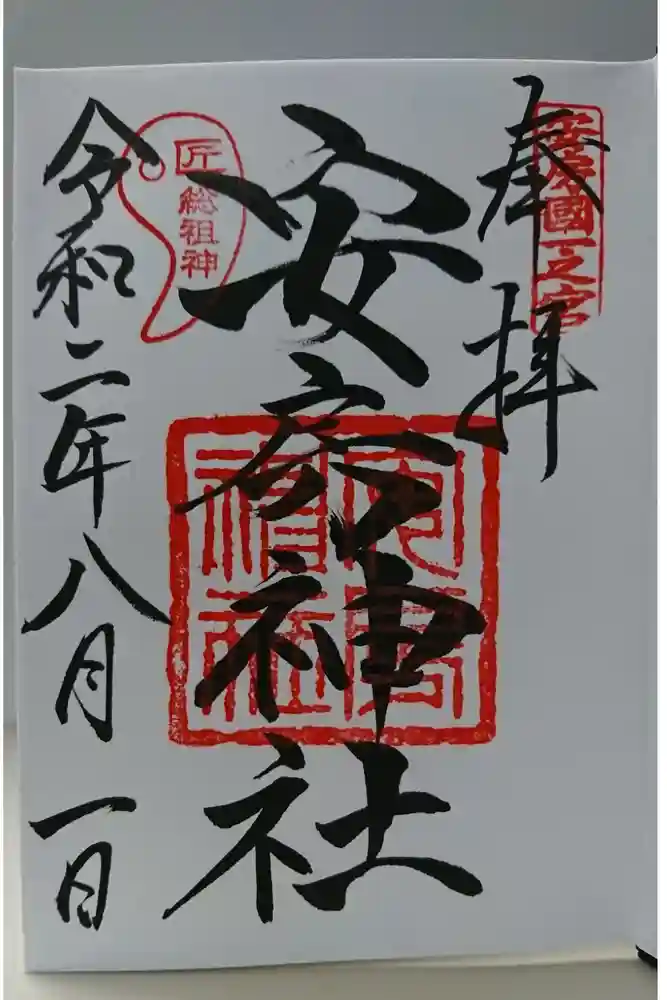 奉拝
安房國一之宮
安房神社
安房神社
匠総祖神
令和二年八月一日